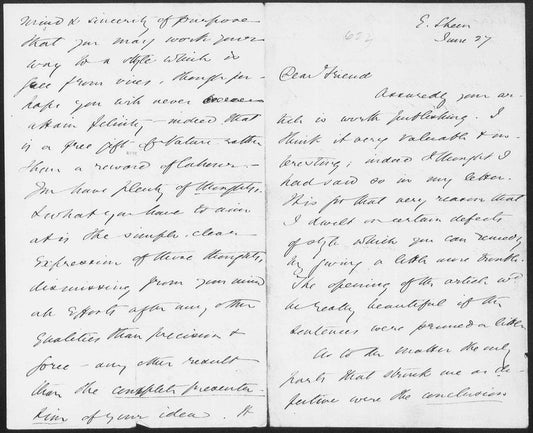 E. Sheen
June 27
632
Dear Friend
Assuredly your ar-
ticle is worth publishing. I
think it very valuable & in-
teresting; indeed I thought I
had said so in my letter.
It is for that very reason that
I dwelt on certain defects
of style which you can remedy
by giving a little more trouble.
The opening of the article wd
be really beautiful if the
sentences were pruned a little
As to the matter the only
parts that struck me as de-
fective were the conclusion
mind & sincerity of purpose
that you may work your
way to a style which is
free from vices, though per-
haps you will never
attain felicity – indeed that
is a free gift of Nature rather
than a reward of labour. –
You have plenty of thoughts,
& what you have to aim
at is the simple, clear
expression of those thoughts,
dismissing from your mind
all efforts after any other
qualities than precision &
force – any other result
than the complete presenta-
tion of your idea. It